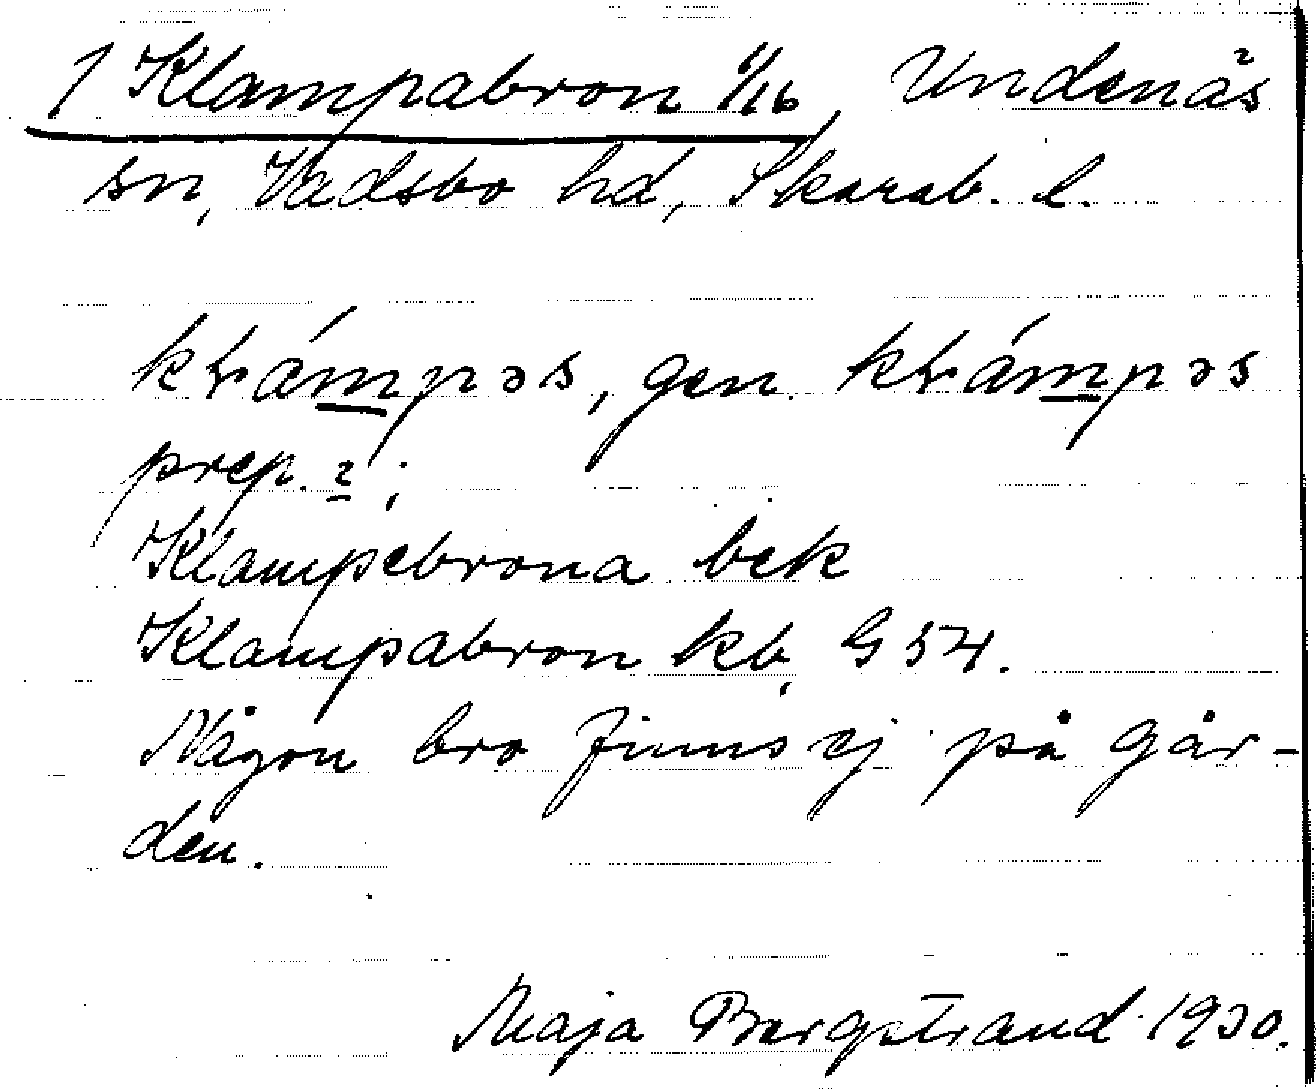 1 Klampabron 1/16, Undenäs
sn, Vadsbo hd, Skarab. l.
prep. i;
Klampebrona bek
Klampabron kb, G 54.
Någon bro finns ej på går-
den.
Maja Bergstrand 1930.